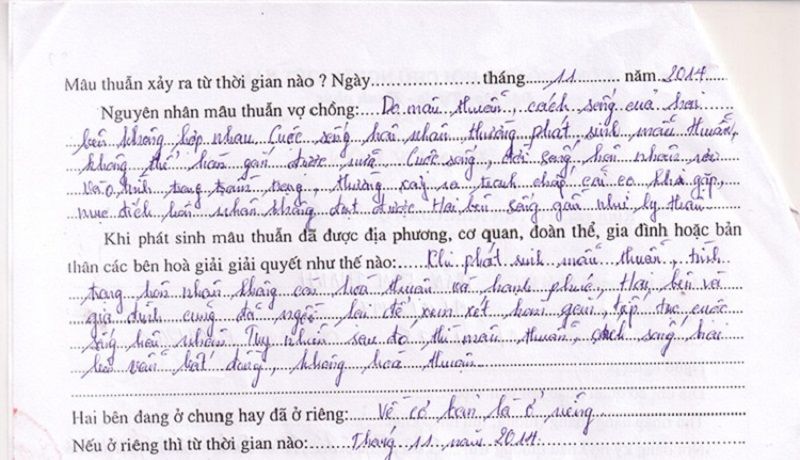 Mâu thuẫn xảy ra từ thời gian nào ? Ngày.................... tháng....11.......... năm..2014...
Nguyên nhân mâu thuẫn vợ chồng:....Do mâu thuẫn, cách sống của hai
bên không hợp nhau. Cuộc sống hôn nhân thường phát sinh mâu thuẫn,
không thể hàn gắn được nữa. Cuộc sống, đời sống, hôn nhân rơi
vào tình trạng trầm trọng, thường xảy ra tranh chấp, cãi cọ gặp,
mục đích hôn nhân không đạt được. Hai bên sống gần như ly thân
Khi phát sinh mâu thuẫn đã được địa phương, cơ quan, đoàn thể, gia đình hoặc bản
thân các bên hoà giải giải quyết như thế nào:......Khi phát sinh mâu thuẫn, tình
trạng hôn nhân không còn hoà thuận và hạnh phúc, Hai bên và
gia đình cũng đã ngồi lại để xem xét hàm gắn, tiếp tục cuộc
sống hôn nhân. Tuy nhiên sau đó thì mâu thuẫn, cách sống hai
bên vẫn bất đồng, không hoà thuận
Hai bên đang ở chung hay đã ở riêng:.....Về cơ bản là ở riêng
Nếu ở riêng thì từ thời gian nào:......Tháng 11 năm 2014